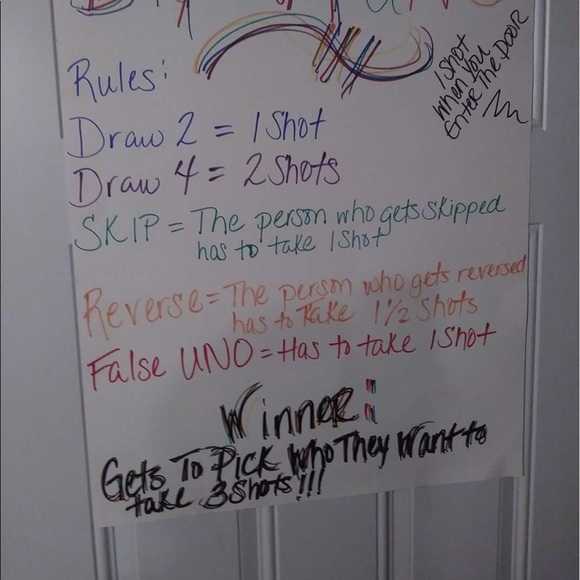 Rules:
1 Shot
when you
Enter The Door
Draw 2 = 1 Shot
Draw 4 = 2 Shots
SKIP = The person who gets skipped
has to take 1 Shot
Reverse = The person who gets reversed
has to Take 1 1/2 Shots
False UNO = Has to take 1 Shot
Winner:
Gets To Pick Who They Want to
take 3 Shots!!!